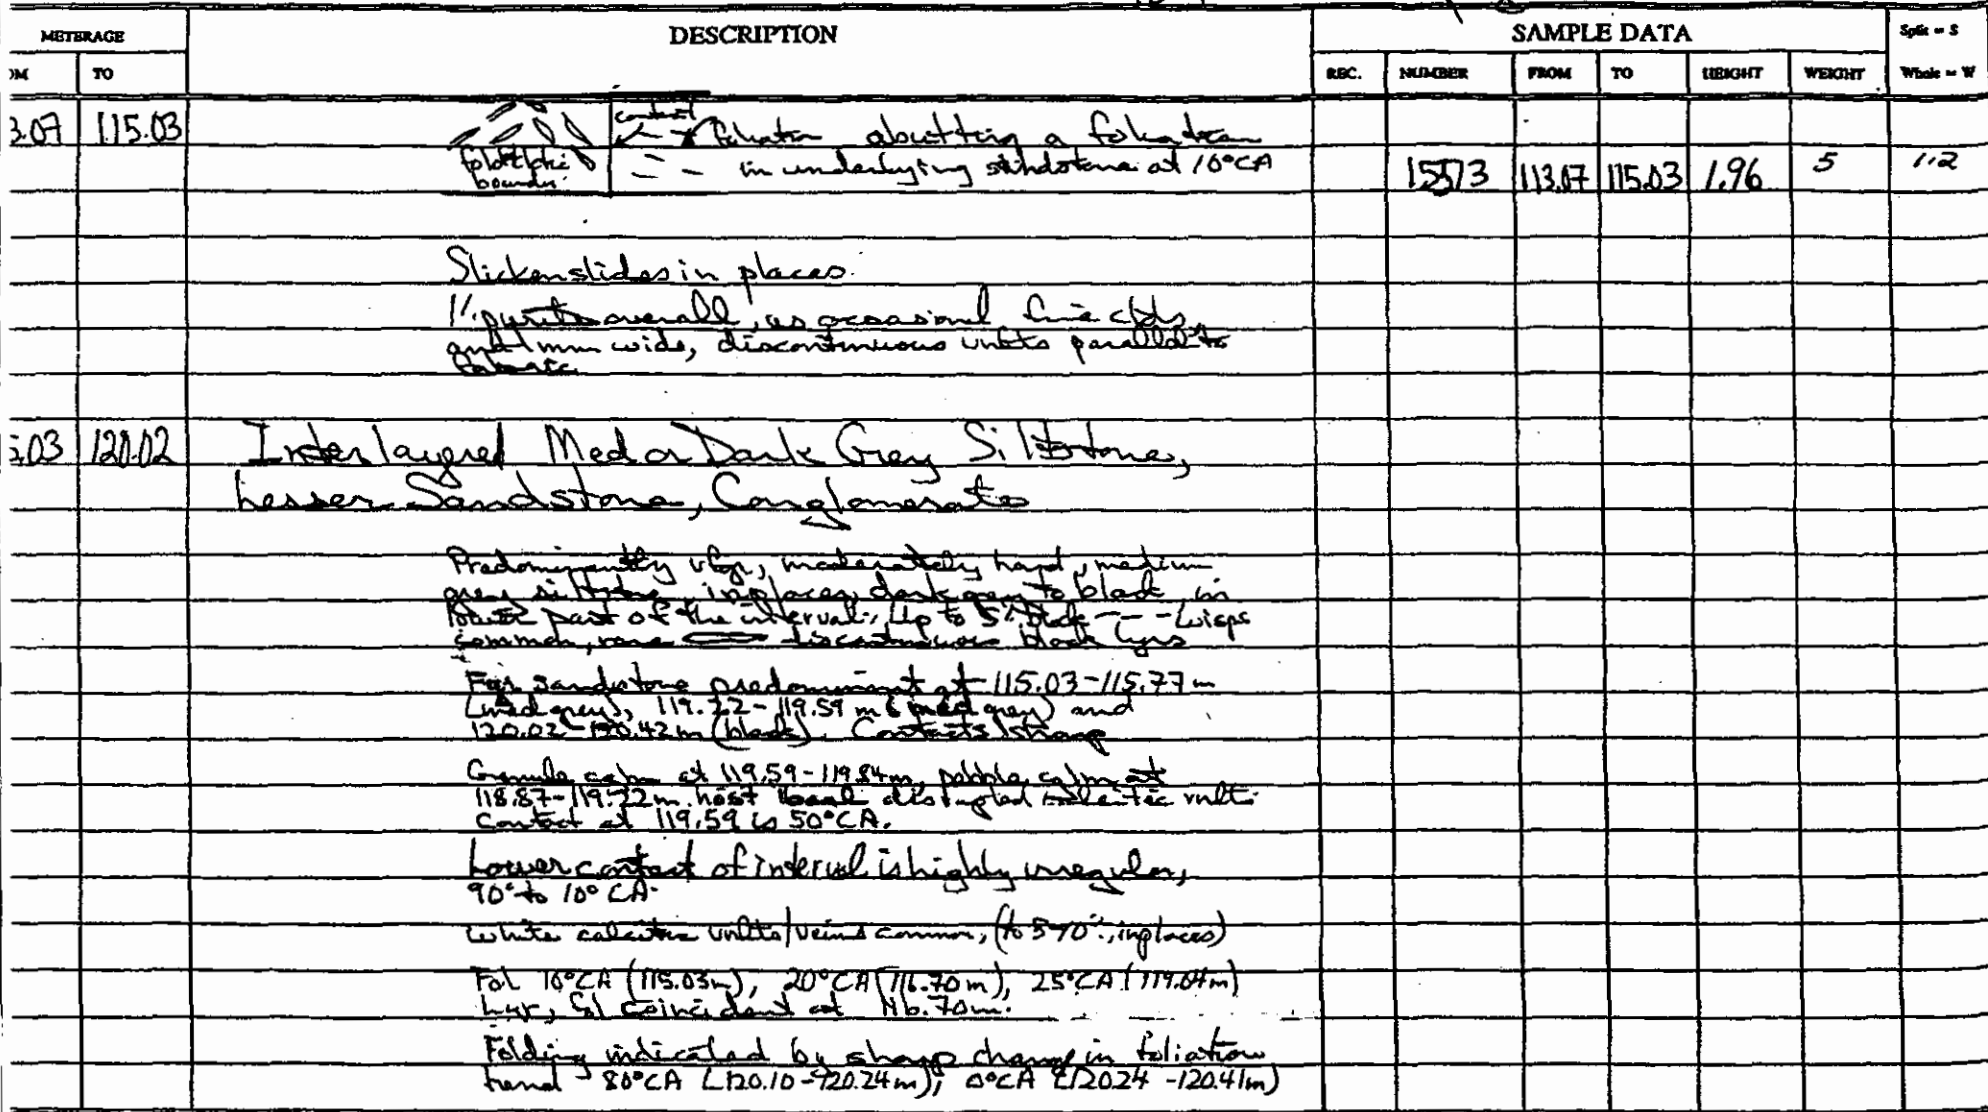 METERAGE DESCRIPTION SAMPLE DATA Split = S
OM TO REC. NUMBER FROM TO HEIGHT WEIGHT Whole = W
3.07 115.03 contact foliation abutting a foliation
in underlying sandstone at 10°CA
15573 113.07 115.03 1.96 5 1.2
Slickenslides in places.
1% pyrite overall, as occasional fine clds
and 1mm wide, discontinuous vnlts parallel to
fabric.
5.03 120.02 Interlayered Med or Dark Grey Siltstone,
Lesser Sandstone, Conglomerate
Predominantly vfgr, moderately hard, medium
grey siltstone, in places dark grey to black in
lower part of the interval. Up to 5% black --- wisps
common, rare discontinuous black lyrs
F.gr sandstone predominant at 115.03-115.77m
(med grey), 119.22-119.59 m (med grey) and
120.02-120.42m (black). Contacts sharp
Granule cglm at 119.59-119.84m, pebble cglm at
118.87-119.22m host disrupted calcite vnlts
Contact at 119.59 is 50°CA.
Lower contact of interval is highly irregular,
90° to 10° CA.
White calcite vnlts/veins common, (to 5-10%, in places)
Fol 10°CA (115.03m), 20°CA (116.70m), 25°CA (119.04m)
Lyr, fol coincident at 116.70m.
Folding indicated by sharp change in foliation
trend - 80°CA (120.10-120.24m), 0°CA (120.24-120.41m)